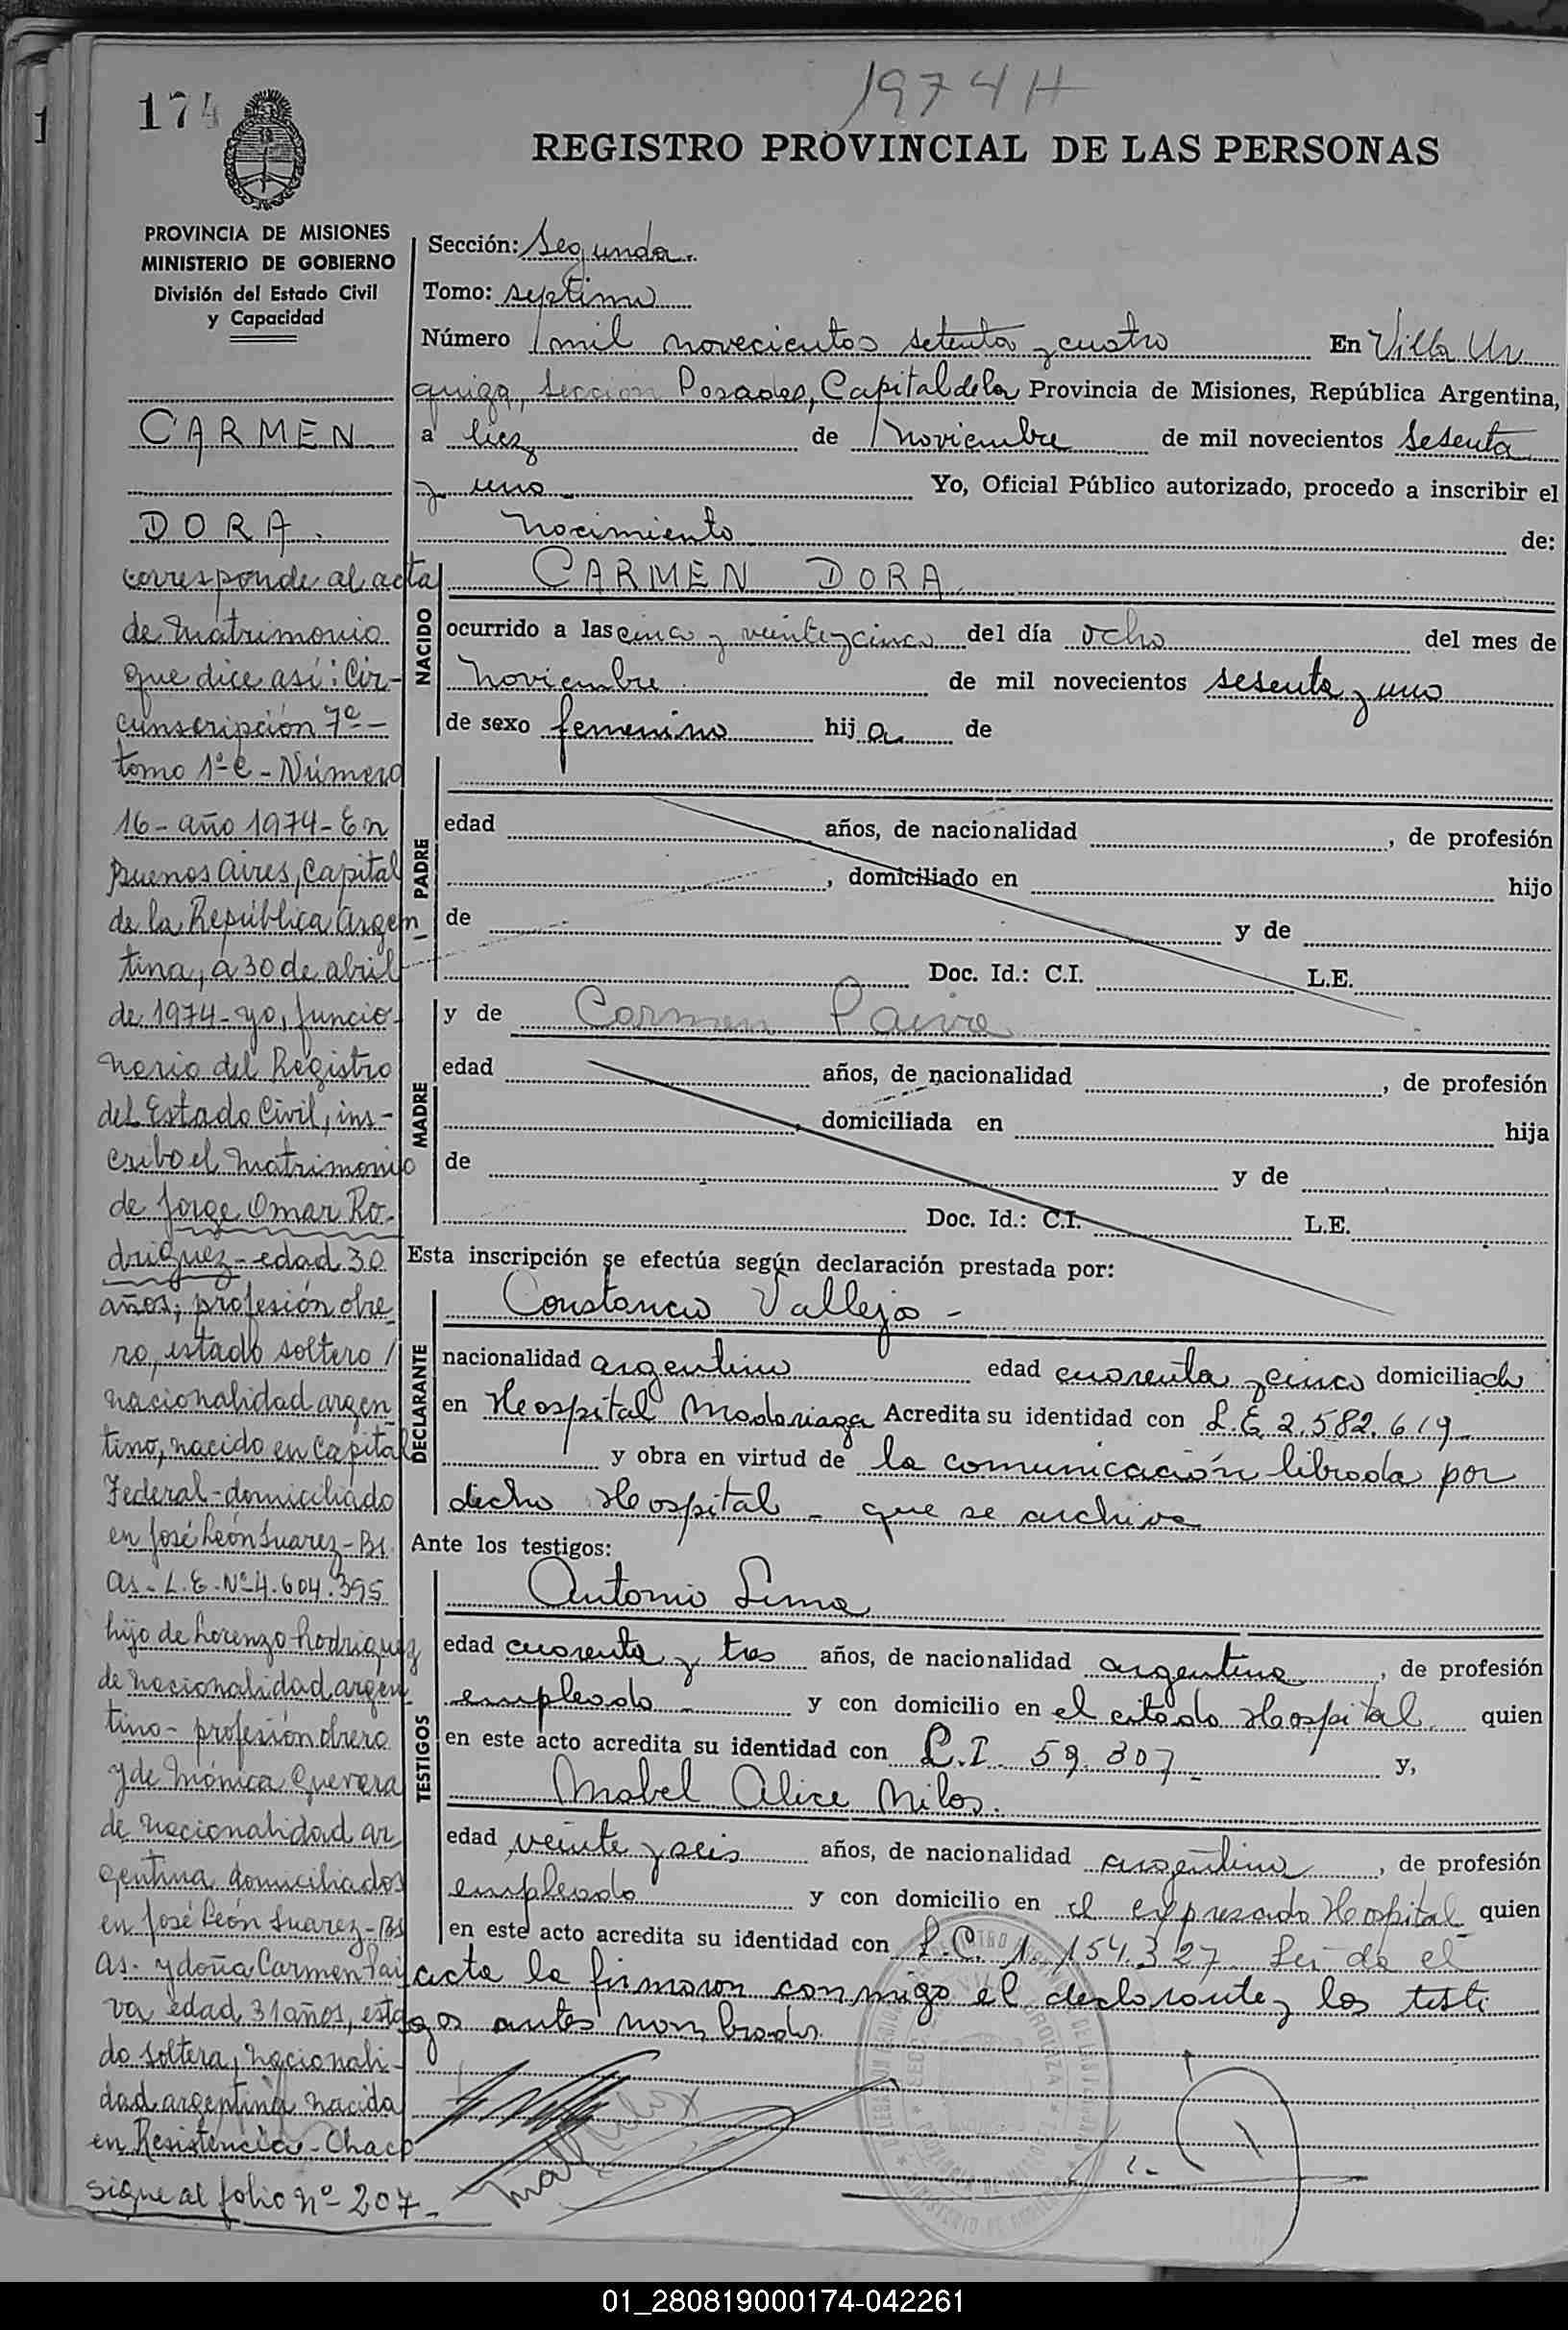 1974 H
174
REGISTRO PROVINCIAL DE LAS PERSONAS
PROVINCIA DE MISIONES
MINISTERIO DE GOBIERNO
División del Estado Civil
y Capacidad
CARMEN
DORA.
corresponde al acta
de Matrimonio
que dice así: Cir-
cunscripción 7ª-
tomo 1º C - Número
16 - año 1974 - En
Buenos Aires, Capital
de la República Argen-
tina, a 30 de abril
de 1974 - yo, funcio-
nario del Registro
del Estado Civil, ins-
cribo el Matrimonio
de Jorge Omar Ro-
driguez - edad 30
años, profesión obre-
ro, estado soltero /
nacionalidad argen-
tino, nacido en Capital
Federal - domiciliado
en José León Suarez - Bs.
As - L.E. Nº 4.604.395
hijo de Lorenzo Rodriguez
de nacionalidad argen-
tino - profesión obrero
y de Mónica Guevara
de nacionalidad ar
gentina domiciliados
en José León Suarez - Bs
As. y doña Carmen Pai
va edad 31 años, esta
do soltera, nacionali-
dad argentina nacida
en Resistencia - Chaco
sigue al folio nº 207.-
Sección: Segunda.
Tomo: septimo
Número mil novecientos setenta y cuatro En Villa Ur
quiza, Sección Posadas, Capital de la Provincia de Misiones, República Argentina,
a diez de Noviembre de mil novecientos sesenta
y uno Yo, Oficial Público autorizado, procedo a inscribir el
Nacimiento de:
NACIDO
CARMEN DORA
ocurrido a las cinco y veinte y cinco del día ocho del mes de
Noviembre de mil novecientos sesenta y uno
de sexo femenino hij a de
PADRE
edad años, de nacionalidad , de profesión
, domiciliado en hijo
de y de
Doc. Id.: C.I. L.E.
MADRE
y de Carmen Paiva
edad años, de nacionalidad , de profesión
, domiciliada en hija
de y de
Doc. Id.: C.I. L.E.
Esta inscripción se efectúa según declaración prestada por:
DECLARANTE
Constancio Vallejo -
nacionalidad argentino edad cuarenta y cinco domiciliado
en Hospital Madariaga Acredita su identidad con L.E. 2.582.619
y obra en virtud de la comunicación librada por
dicho Hospital - que se archiva
Ante los testigos:
TESTIGOS
Antonio Lima
edad cuarenta y tres años, de nacionalidad argentina, de profesión
empleado y con domicilio en el citado Hospital quien
en este acto acredita su identidad con C.I. 59.307 - y,
Mabel Alice Milos.
edad veinte y seis años, de nacionalidad argentina, de profesión
empleada y con domicilio en el expresado Hospital quien
en este acto acredita su identidad con L.C. 1.154.327 Lei da el
acta la firmaron conmigo el declarante y los testi
gos antes nombrados
01_280819000174-042261